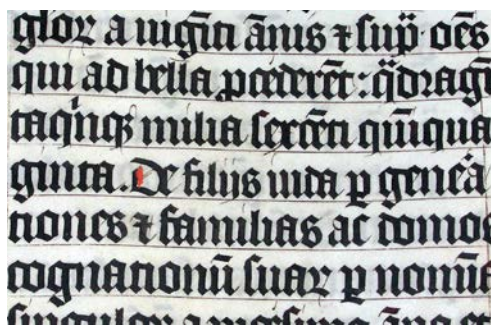 glor̄ a viginti ānis ⁊ sup̄ · oēs
qui ad bella ꝓcederēt : q̄dragī
taqͥnqꝫ milia sexcēti quīqua
ginta. De filijs iuda p geneāa
tiones ⁊ familias ac domos
cognationū suaꝝ p nomīa